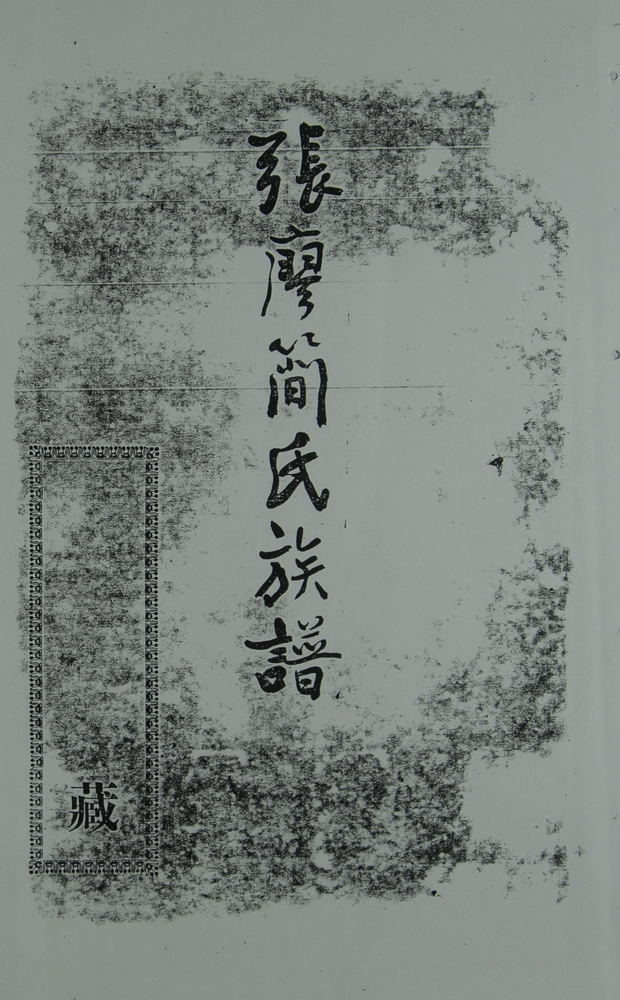 張廖簡氏族譜
藏